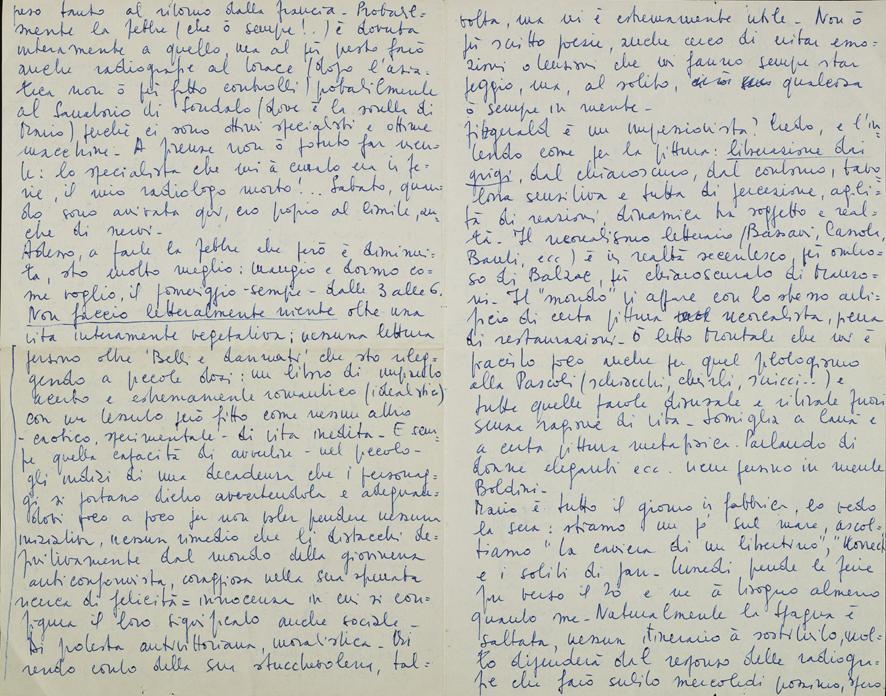 peso tanto al ritorno dalla Francia - Probabil=
mente la febbre (che ò sempre!..) è dovuta
interamente a quello, ma al più presto farò
anche radiografie al torace (dopo l'asia-
tica non ò più fatto controlli) probabilmente
al Sanatorio di Sondalo (dove è la sorella di
Mario) perché ci sono ottimi specialisti e ottime
macchine - A Firenze non ò potuto far nien-
te: lo specialista che mi à curato era in fe-
rie, il mio radiologo morto!... Sabato, quan-
do sono arrivata qui, ero proprio al limite, an-
che di nervi -
Adesso, a parte la febbre che però è diminui-
ta, sto molto meglio: mangio e dormo co-
me voglio, il pomeriggio - sempre - dalle 3 alle 6.
Non faccio letteralmente niente oltre una
vita interamente vegetativa; nessuna lettura
persino oltre 'Belli e dannati' che sto rileg-
gendo a piccole dosi: un libro di impianto
incerto e estremamente romantico (idealistico)
con un tessuto però fitto come nessun altro
- caotico, sperimentale - di vita inedita - E sem-
pre quella capacità di avvertire - nel piccolo -
gli indizi di una decadenza che i personag-
gi si portano dietro avvertendola e adeguan-
dovisi poco a poco per non voler prendere nessuna
iniziativa, nessun rimedio che li distacchi de-
finitivamente dal mondo della giovinezza
anticonformista, coraggiosa nella sua sfrenata
ricerca di felicità = innocenza in cui si con-
figura il loro significato anche sociale -
Di protesta antivittoriana, moralistica - Mi
rendo conto della sua stucchevolezza, tal=
volta, ma mi è estremamente utile - Non ò
più scritto poesie, anche cerco di evitar emo-
zioni o tensioni che mi fanno sempre star
peggio, ma, al solito, qualcosa
ò sempre in mente -
Fitzgerald è un impressionista? Credo, e l'in-
tendo come per la pittura: liberazione dai
grigi, dal chiaroscuro, dal contorno, tavo-
lozza sensitiva e tutta di percezione, agili-
tà di reazioni, dinamica tra soggetto e real-
tà - Il neorealismo letterario (Bassani, Cassola,
Banti, ecc) è in realtà secentesco, più ombro-
so di Balzac, più chiaroscurato di Manzo-
ni - Il "mondo" vi appare con lo stesso arti-
ficio di certa pittura neorealista, piena
di restaurazioni - Ò letto Montale che mi è
piaciuto poco anche per quel plologismo
alla Pascoli (schiocchi, chiurli, scricci..) e
tutte quelle favole disusate e ritirate fuori
senza ragione di vita - Somiglia a Carrà e
a certa pittura metafisica. Parlando di
donne eleganti ecc. viene persino in mente
Boldini -
Mario è tutto il giorno in fabbrica, lo vedo
la sera: stiamo un po' sul mare, ascol-
tiamo "La carriera di un libertino",
e i soliti di jazz - Lunedì prende le ferie
fin verso il 20 e ne à bisogno almeno
quanto me - Naturalmente la Spagna è
saltata, nessun itinerario à sostituito, mol-
to dipenderà dal responso delle radiogra-
fie che farò subito mercoledì prossimo, spero